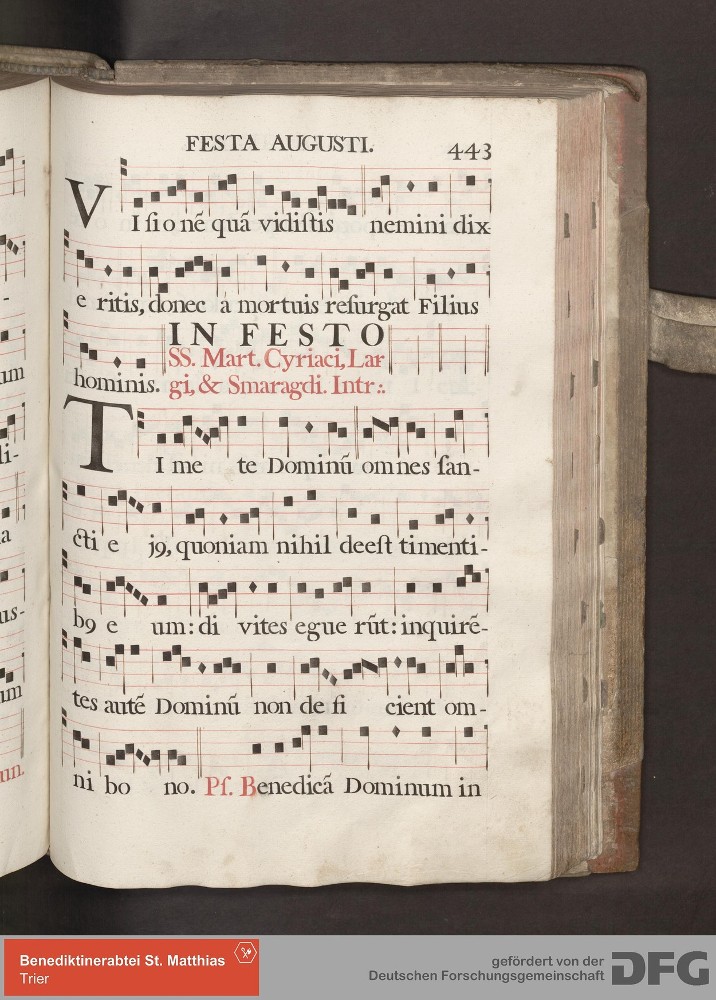 FESTA AUGUSTI. 443
VIsio nẽ quã vidistis nemini dix
e ritis, donec a mortuis resurgat Filius
IN FESTO
SS. Mart. Cyriaci, Lar
hominis. gi, & Smaragdi. Intr:.
TIme te Dominũ omnes san-
cti e j9, quoniam nihil deest timenti-
b9 e um: di vites egue rũt: inquirẽ-
tes autẽ Dominũ non de fi cient om-
ni bo no. Ps. Benedicã Dominum in
um
li-
a
us-
um
un.
Benediktinerabtei St. Matthias
Trier
gefördert von der
Deutschen Forschungsgemeinschaft DFG